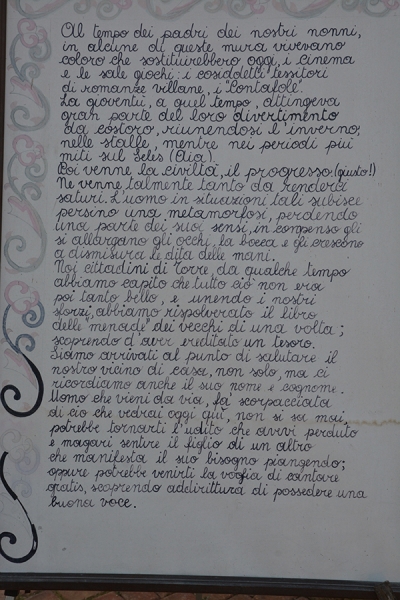 Al tempo dei padri dei nostri nonni,
in alcune di queste mura vivevano
coloro che sostituirebbero oggi, i cinema
e le sale giochi: i cosiddetti tessitori
di romanze villane, i "Contafole".
La gioventù, a quel tempo, attingeva
gran parte del loro divertimento
da costoro, riunendosi l'inverno,
nelle stalle, mentre nei periodi più
miti sul Selés (Aia).
Poi venne la civiltà, il progresso. (giusto!)
Ne venne talmente tanto da renderci
saturi. L'uomo in situazioni tali subisce
persino una metamorfosi, perdendo
una parte dei suoi sensi, in compenso gli
si allargano gli occhi, la bocca e gli crescono
a dismisura le dita delle mani.
Noi cittadini di Torre, da qualche tempo
abbiamo capito che tutto ciò non era
poi tanto bello, e unendo i nostri
sforzi, abbiamo rispolverato il libro
delle "menade" dei vecchi di una volta;
scoprendo d'aver ereditato un tesoro.
Siamo arrivati al punto di salutare il
nostro vicino di casa, non solo, ma ci
ricordiamo anche il suo nome e cognome.
Uomo che vieni da via, fa' scorpacciata
di ciò che vedrai oggi qui, non si sa mai,
potrebbe tornarti l'udito che avevi perduto
e magari sentire il figlio di un altro
che manifesta il suo bisogno piangendo;
oppure potrebbe venirti la voglia di cantare
gratis, scoprendo addirittura di possedere una
buona voce.